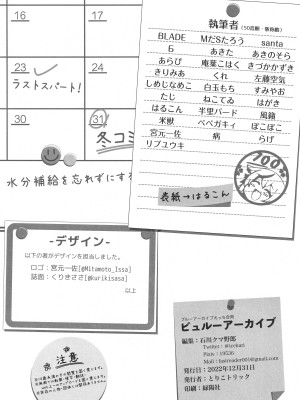 16
17
23
24
ラストスパート!
30
31
冬コミ
水分補給を忘れずにする
執筆者(50音順・敬称略)
BLADE MだSたろう santa
Б あきた あきのそら
あらび 庵葉こはく きづかかずき
きりみあ くれ 左藤空気
しめじなめこ 白玉もち すみやお
たじ ねこてゐ はがき
はるこん 半里バード 風籟
米獣 ベベガキィ ぽこぽこ
宮元一佐 病 らげ
リブユウキ
700
表紙→はるこん
-デザイン-
以下の者がデザインを担当しました。
ロゴ:宮元一佐[@Mitamoto_Issa]
誌面:くりきささ[@kurikisasa]
以上
注意
ビュルーアーカイブ
編集:石川クマ野郎
発行日:2022年12月31日
発行:とりこトリック
印刷:緑陽社